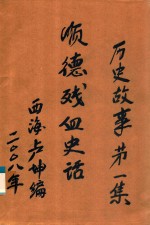 历史故事第一集
顺德残血史话
西海卢坤编
二00八年